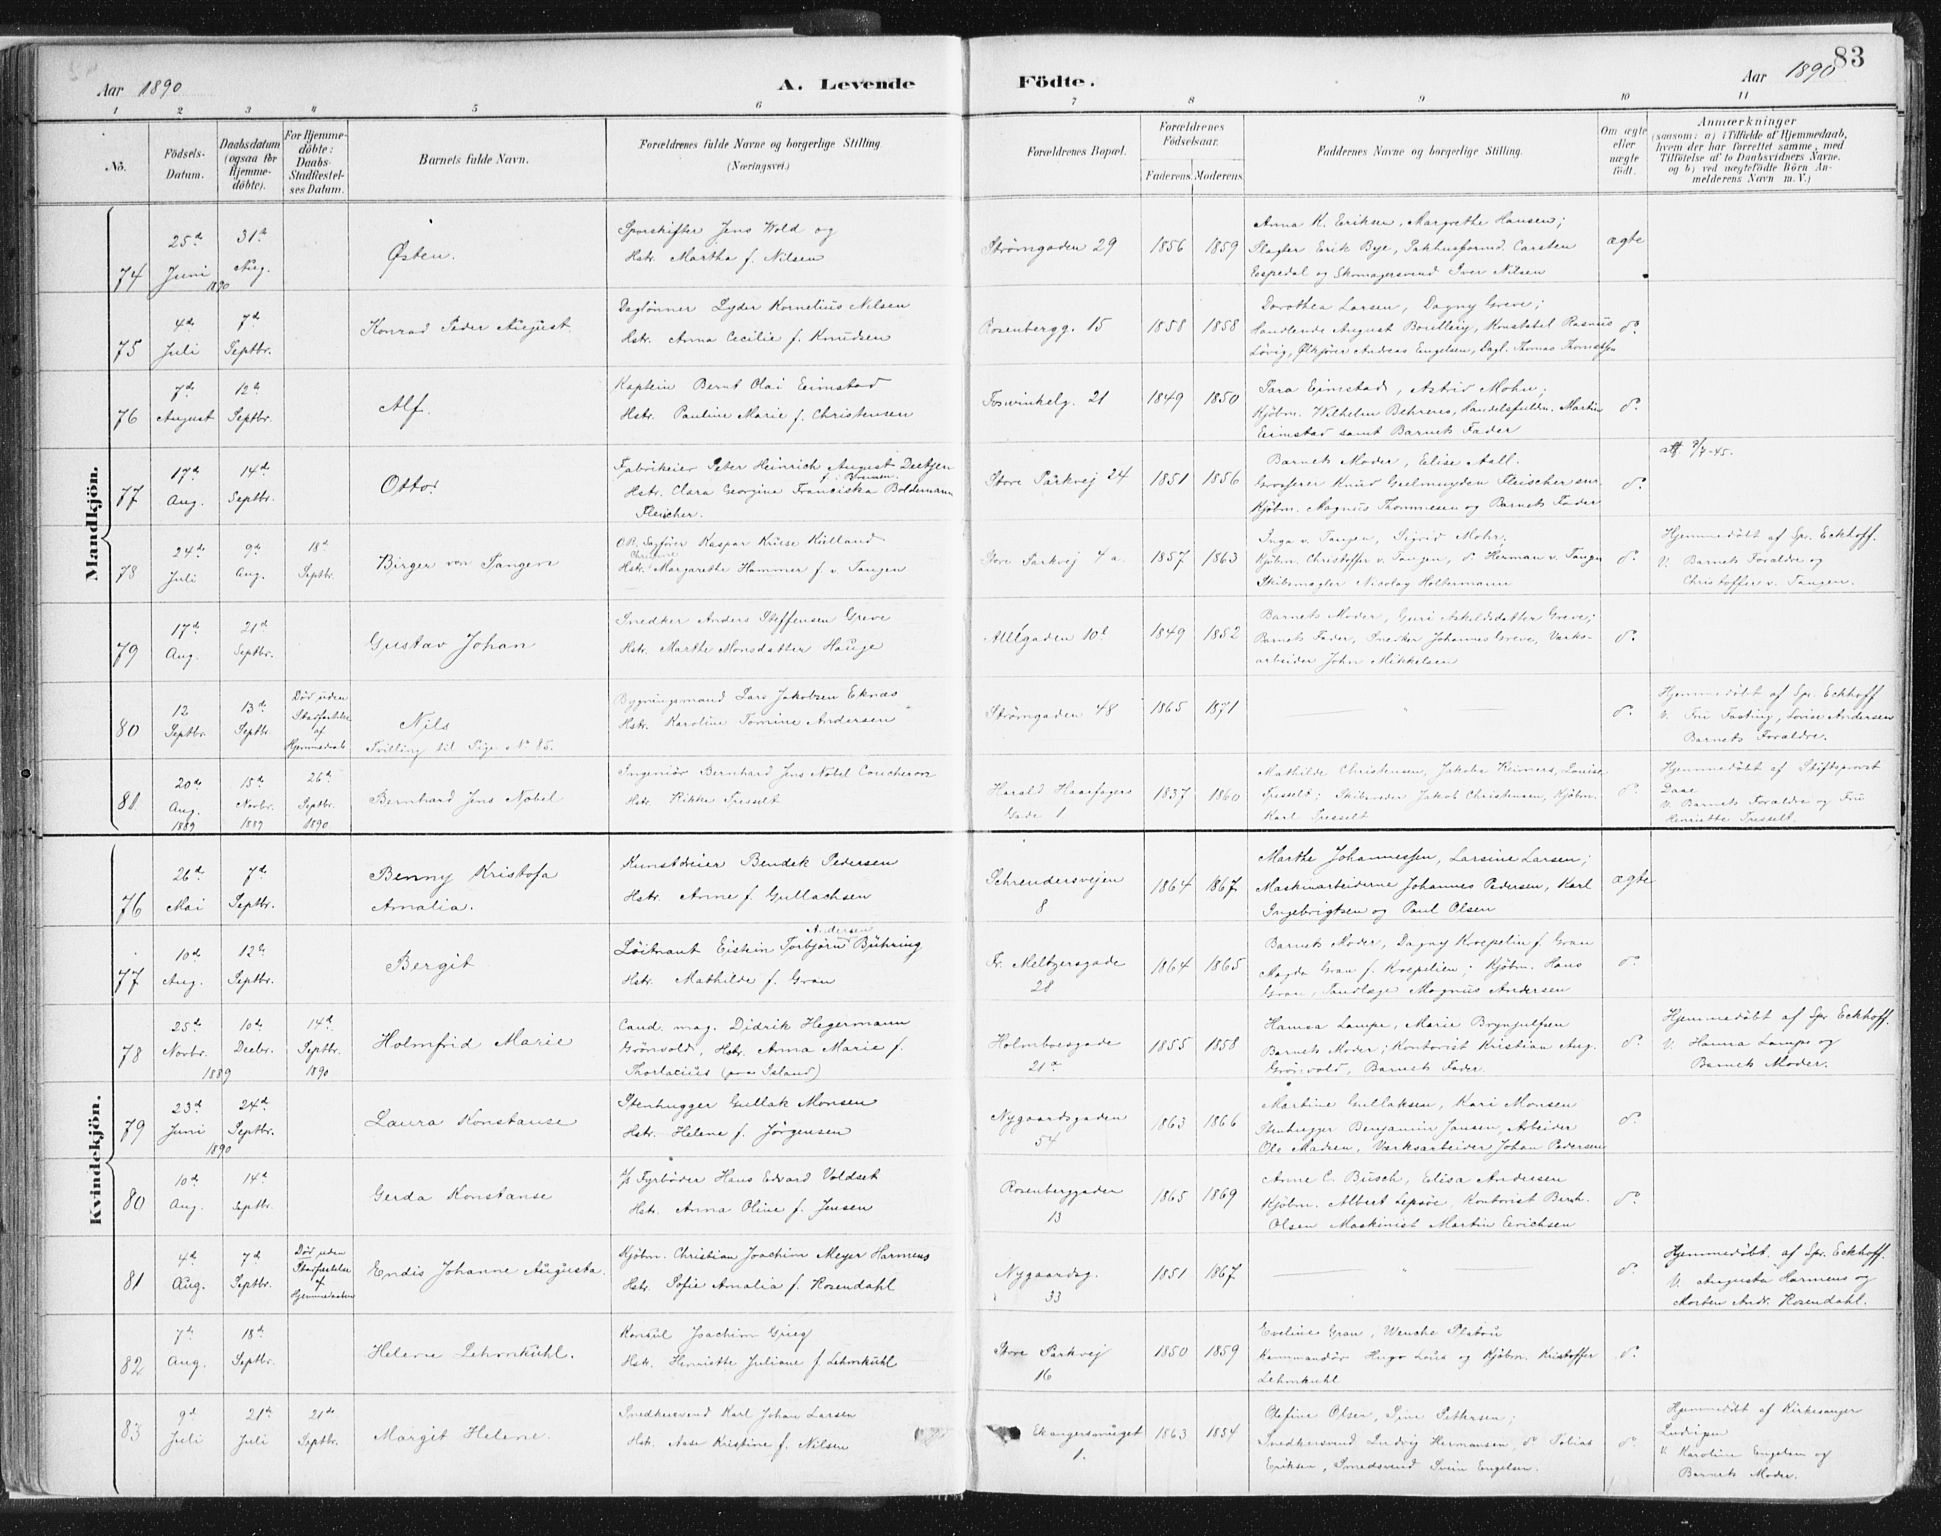 83
Aar 1890
A. Levende Födte.
Aar 1890
1 2 3 4 5 6 7 8 9 10 11
No.
Födsels-Datum.
Daabsdatum (ogsaa for Hjemme-döbte).
For Hjemme-döbte: Daabs-Stadfæstelses Datum.
Barnets fulde Navn.
Forældrenes fulde Navne og borgerlige Stilling
(Næringsvei.)
Forældrenes Bopæl.
Forældrenes Födselsaar.
Faderens. Moderens.
Faddernes Navne og borgerlige Stilling.
Om ægte eller uægte födt.
Anmærkninger
(saasom: a) i Tilfælde af Hjemmedaab,
hvem der har forrettet samme, med
Tilföielse af to Daabsvidners Navne,
og b) ved uægtefödte Börn An-
melderens Navn m. V.)
Mandkjön.
74
25de Juni 1890
31te Aug.
Østen.
Sporskifter Jens Wold og
Hstr. Martha f. Nilsen
Strömgaden 29
1856 1859
Anna K. Eriksen, Margrethe Hansen;
Slagter Erik Bye, Pakhusformd. Carsten
Espedal og Skomagersvend Iver Nilsen
ægte
75
4de Juli
7de Septbr.
Konrad Peder August.
Daglönner Lyder Kornelius Nilsen
Hstr. Anna Cecilie f. Knudsen
Rosenbergg. 15
1858 1858
Dorothea Larsen, Dagny Greve;
Handlende August Konstabel Rasmus
Lövig, Ølkjörer Andreas Engelsen, Dagl. Thomas Thomassen
do
76
7de August
12te Septbr.
Alf.
Kaptein Bernt Olai Eimstad
Hstr. Pauline Marie f. Christensen
Foswinkelg. 21
1849 1850
Sara Eimstad, Astrid Mohn;
Kjöbm. Wilhelm Behrens, Handelsfuldm. Martin
Eimstad samt Barnets Fader
do
77
17de Aug.
14de Septbr.
Otto.
Fabrikeier Peter Heinrich August Deetjen
f. i Bremen.
Hstr. Clara Georgine Franciska Boldemann
Fleischer.
Store Parkvej 24
1851 1856
Barnets Moder, Elise Aall.
Grosserer Knud Gielmuyden Fleischer snr.
Kjöbm. Magnus Thommesen og Barnets Fader
do
78
24de Juli
9de Aug.
18de Septbr.
Birger von Tangen
O.R. Sagförer Kaspar Kruse Kielland
Hstr. Margarethe Hammer f. v. Tangen
Store Parkvej 4 a.
1857 1863
Inga v. Tangen, Sigrid Mohr,
Kjöbm. Christoffer v. Tangen, do Herman v. Tangen
Skibsmægler Nicolay Holtermann
do
Hjemmedöbt af Spr. Eckhoff.
V. Barnets Forældre og
Christoffer v. Tangen.
79
17de Aug.
21de Septbr.
Gustav Johan
Snedker Anders Steffensen Greve
Hstr. Marthe Monsdatter Hauge
Allégaden 10b
1849 1852
Barnets Moder, Guri Askildsdatter Greve;
Barnets Fader, Snedker Johannes Greve, Værks-
arbeider John Mikkelsen
do
80
12 Septbr.
13de Septbr
Död uden Stadfæstelse af Hjemmedaab
Nils
Tvilling til Pige No 85.
Bygningsmand Lars Jakobsen Eknæs
Hstr. Karoline Tomine Andersen
Strömgaden 48
1865 1871
do
Hjemmedöbt af Spr. Eckhoff
V. Fru Fasting, Lovise Andersen
Barnets Forældre.
81
20de Aug. 1889
15de Novbr. 1889
26de Septbr. 1890
Bernhard Jens Nobel
Ingeniör Bernhard Jens Nobel Coucheron
Hstr. Rikke Tresselt
Harald Haarfagers
Gade 1
1837 1860
Mathilde Christensen, Jakoba Reimers, Louise
Tresselt; Skibsreder Jakob Christensen, Kjöbm.
Karl Tresselt
do
Hjemmedöbt af Stiftsprovst
Daae
V. Barnets Forældre og Fru
Henriette Tresselt.
Kvindekjön.
76
26de Mai
7de Septbr.
Benny Kristofa
Amalia.
Kunstdreier Bendik Pedersen
Hstr. Anne f. Gullachsen
Schrendersvejen
8
1864 1867
Marthe Johannessen, Larsine Larsen;
Maskinarbeiderne Johannes Pedersen, Karl
Ingebrigtsen og Paul Olsen
ægte
77
10de Aug.
12te Septbr.
Bergit
Andersen
Löitnant Eistein Torbjörn Bühring
Hstr. Mathilde f. Gran
Fr. Meltzersgade
28
1864 1865
Barnets Moder, Dagny Koepelin f. Gran
Magda Gran f. Kroepelien; Kjöbm. Hans
Gran, Tandlæge Magnus Andersen
do
78
25de Novbr. 1889
10de Decbr.
14de Septbr. 1890
Holmfrid Marie
Cand. mag. Didrik Hegermann
Grönvold, Hstr. Anna Marie f.
Thorlacius (paa Island)
Holmboesgade
21a
1855 1858
Hanna Lampe, Marie Brynjulfsen
Barnets Moder; Kontorist Kristian Aug.
Grönvold, Barnets Fader.
do
Hjemmedöbt af Spr Eckhoff.
V. Hanna Lampe og
Barnets Moder.
79
23de Juni 1890
24de Septbr.
Laura Konstanse
Stenhugger Gullak Monsen
Hstr. Helene f. Jörgensen
Nygaardsgaden
54
1863 1866
Martine Gullaksen, Kari Monsen
Stenhugger Benjamin Jansen, Arbeider
Ole Madsen, Værksarbeider Johan Pedersen
do
80
10de Aug.
14de Septbr.
Gerda Konstanse
Fyrböder Hans Edvard Voldset
Hstr. Anna Oline f. Jensen
Rosenberggaden
13
1865 1869
Anne C. Busch, Elisa Andersen
Kjöbm. Albert Lepsöe, Kontorist Bernh.
Olsen Maskinist Martin Eerichsen
do
81
4de Aug.
7de Septbr
Död uden Stadfæstelse af Hjemmedaaben
Endis Johanne Augusta.
Kjöbm. Christian Joachim Meyer Harmens
Hstr. Sofie Amalia f. Rosendahl
Nygaardsg.
33
1851 1867
do
Hjemmedöbt af Spr. Eckhoff.
V. Augusta Harmens og
Morten Andr. Rosendahl.
82
7de Aug.
18de Septbr.
Helene Lehmkuhl.
Konsul Joachim Grieg
Hstr. Henriette Juliane f. Lehmkuhl
Store Parkvej
16
1850 1859
Eveline Gran, Wenche Platou
Kommandör Hugo Lous og Kjöbm. Kristoffer
Lehmkuhl
do
83
9de Juli
21de Juli
21de Septbr.
Margit Helene.
Snedkersvend Karl Johan Larsen
Hstr. Aase Kristine f. Nilsen
Ekangersmuget
1.
1863 1854
Olefine Olsen, Sine Pettersen;
Snedkersvend Ludvig Hermansen, do Tobias
Eriksen, Smedsvend Svein Engelsen.
do
Hjemmedöbt af Kirkesanger
V. Karoline Engelsen og
Barnets Moder.